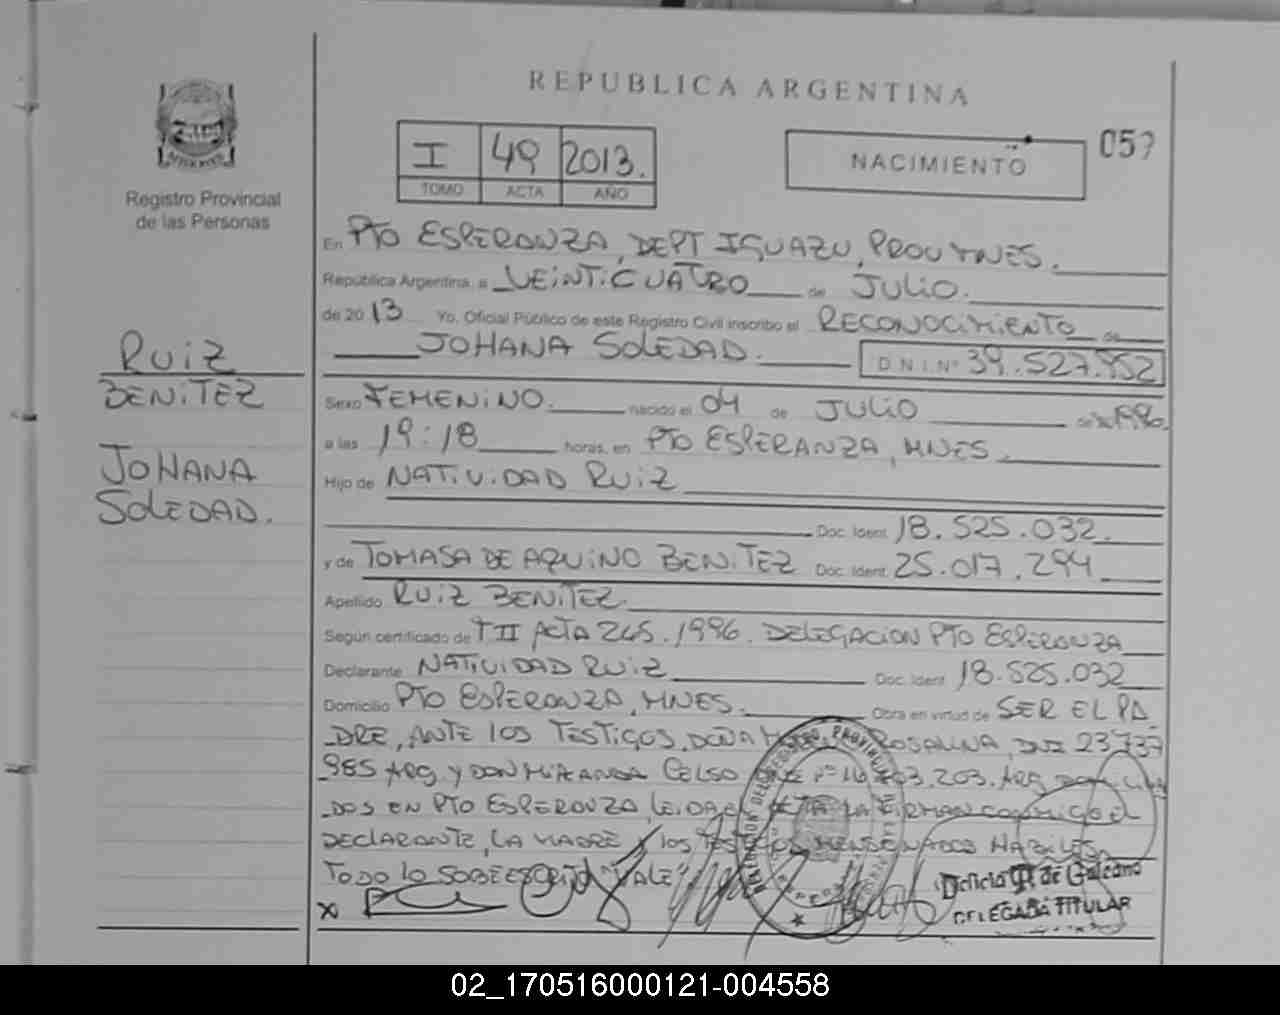 REPUBLICA ARGENTINA
Registro Provincial
de las Personas
I 49 2013.
TOMO ACTA AÑO
NACIMIENTO
En PTO ESPERANZA, DEPT IGUAZU, PROV MNES.
República Argentina, a VEINTICUATRO de JULIO.
de 2013 Yo, Oficial Público de este Registro Civil inscribo el RECONOCIMIENTO de
JOHANA SOLEDAD. D.N.I. Nº 39.527.952
RUIZ
BENITEZ
JOHANA
SOLEDAD.
Sexo FEMENINO. nacido el 04 de JULIO de 1996.
a las 19:18 horas, en PTO ESPERANZA, MNES.
Hijo de NATIVIDAD RUIZ
Doc. Ident. 18.525.032.
y de TOMASA DE AQUINO BENITEZ Doc. Ident. 25.017.294
Apellido RUIZ BENITEZ.
Según certificado de T II ACTA 245. 1996. DELEGACION PTO ESPERANZA
Declarante NATIVIDAD RUIZ Doc. Ident. 18.525.032
Domicilio PTO ESPERANZA, MNES. Obra en virtud de SER EL PA
DRE, ANTE LOS TESTIGOS, DOÑA ROSALINA, DNI 23737
985 ARG. Y DON MIRANDA CELSO Nº 203. ARG. DOMICILIA
DOS EN PTO ESPERANZA, LEIDA EL ACTA LA FIRMAN CONMIGO EL
DECLARANTE, LA MADRE Y LOS TESTIGOS MENCIONADOS HABILES.
TODO LO SOBREESCRITO "VALE"
X
DELEGADA TITULAR
02_170516000121-004558